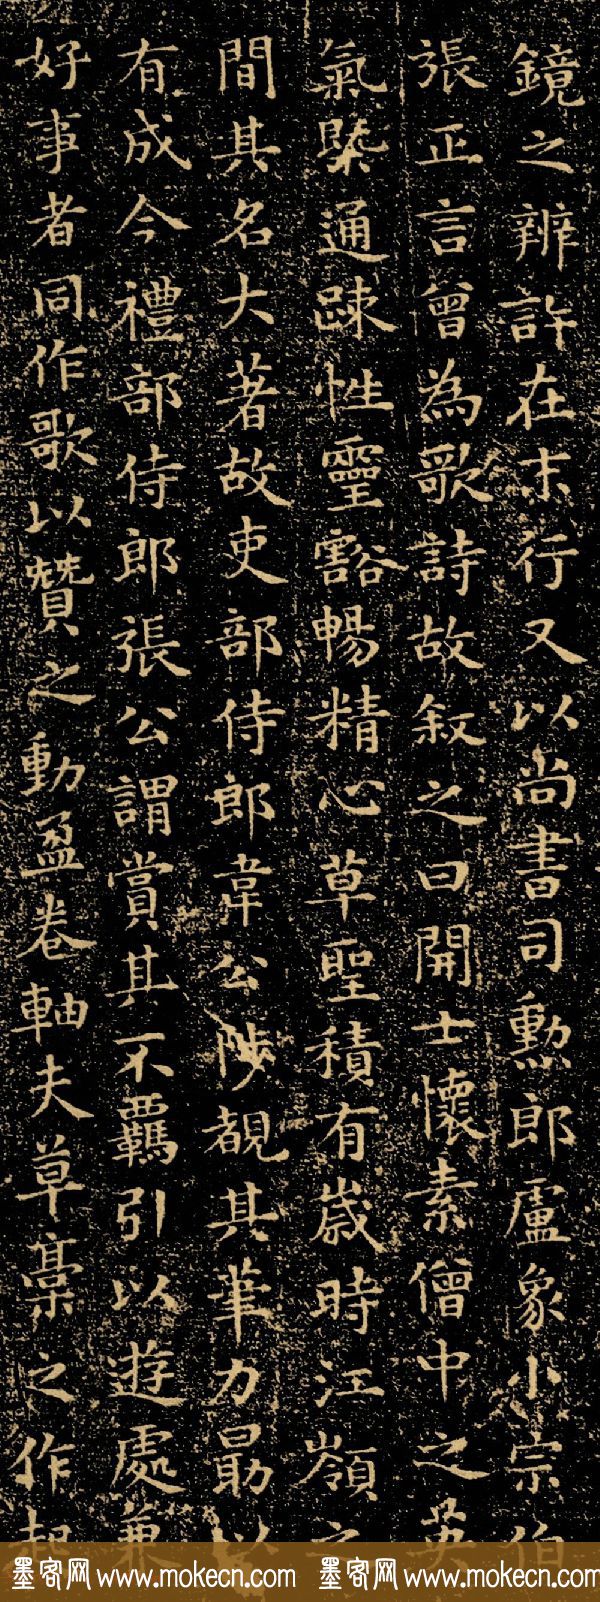 鏡之辨許在末行又以尚書司勲郎盧象小宗伯
張正言曾為歌詩故叙之曰開士懷素僧中之英
氣槩通踈性靈豁暢精心草聖積有歲時江嶺之
間其名大著故吏部侍郎韋公陟覩其筆力勗以
有成今禮部侍郎張公謂賞其不羈引以遊處兼
好事者同作歌以贊之動盈卷軸夫草稾之作起
墨客网 www.mokecn.com 墨客网 www.mokecn.com